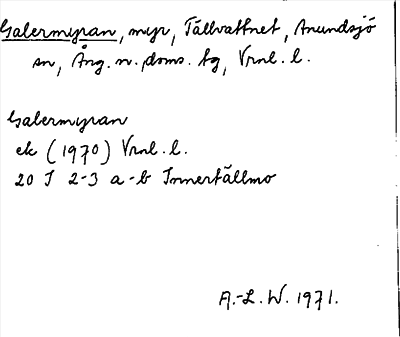 Galermyran, myr, Tällvattnet, Anundsjö
sn, Ång. n. doms. tg, Vrnl. l.
Galermyran
ek (1970) Vrnl. l.
20 I 2-3 a-b Innertällmo
A.-L. W. 1971.